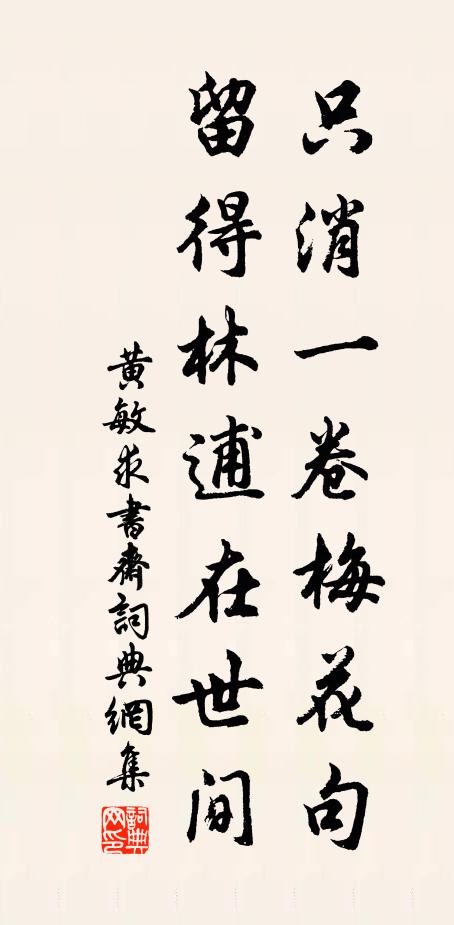 只消一卷梅花句
留得林逋在世间
黄敏求書齋詞典網集
詞典
网印